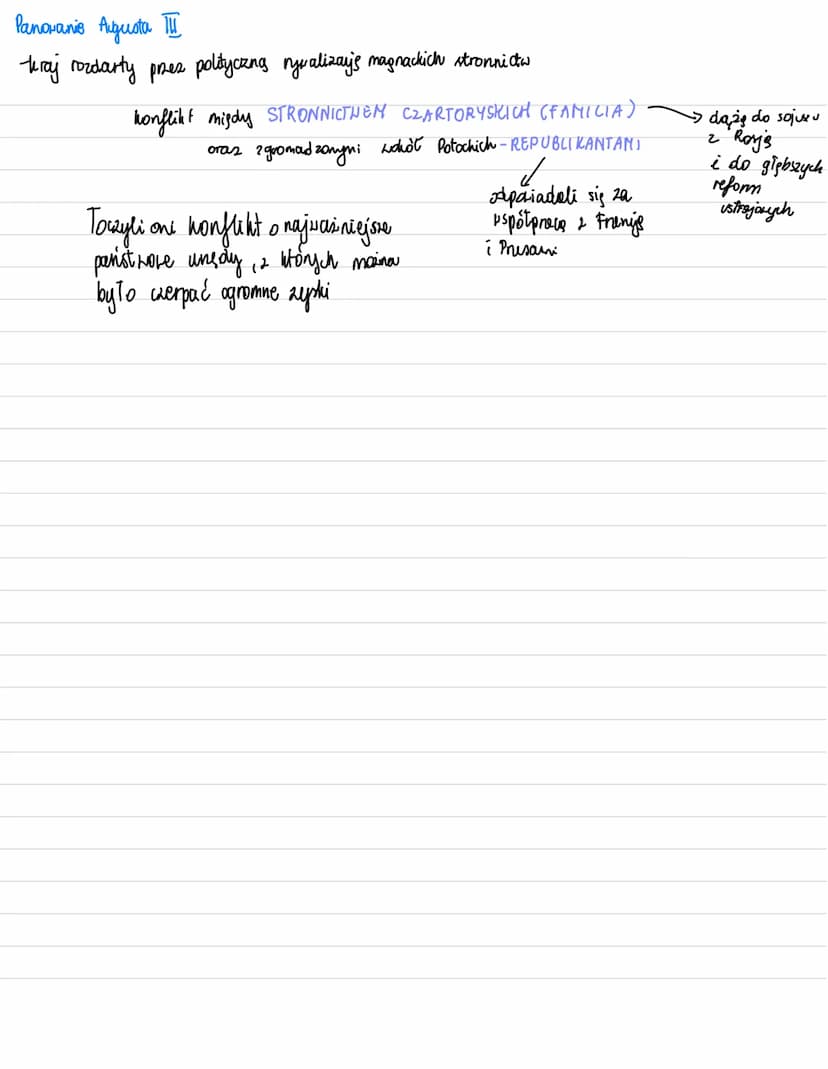 Panowanie Augusta III
- kraj rozdarty przez polityczną rywalizację magnackich stronnictw
konflikt między STRONNICTWEM CZARTORYSKICH (FAMILIA)
oraz zgromadzonymi wokół Potockich - REPUBLIKANTAMI
dążą do sojuszu
z Rosją
i do głębszych
reform
ustrojowych
odpowiadali się za
współpracą z Francją
i Prusami
Toczyli oni konflikt o najważniejsze
państwowe urzędy, z których można
było czerpać ogromne zyski